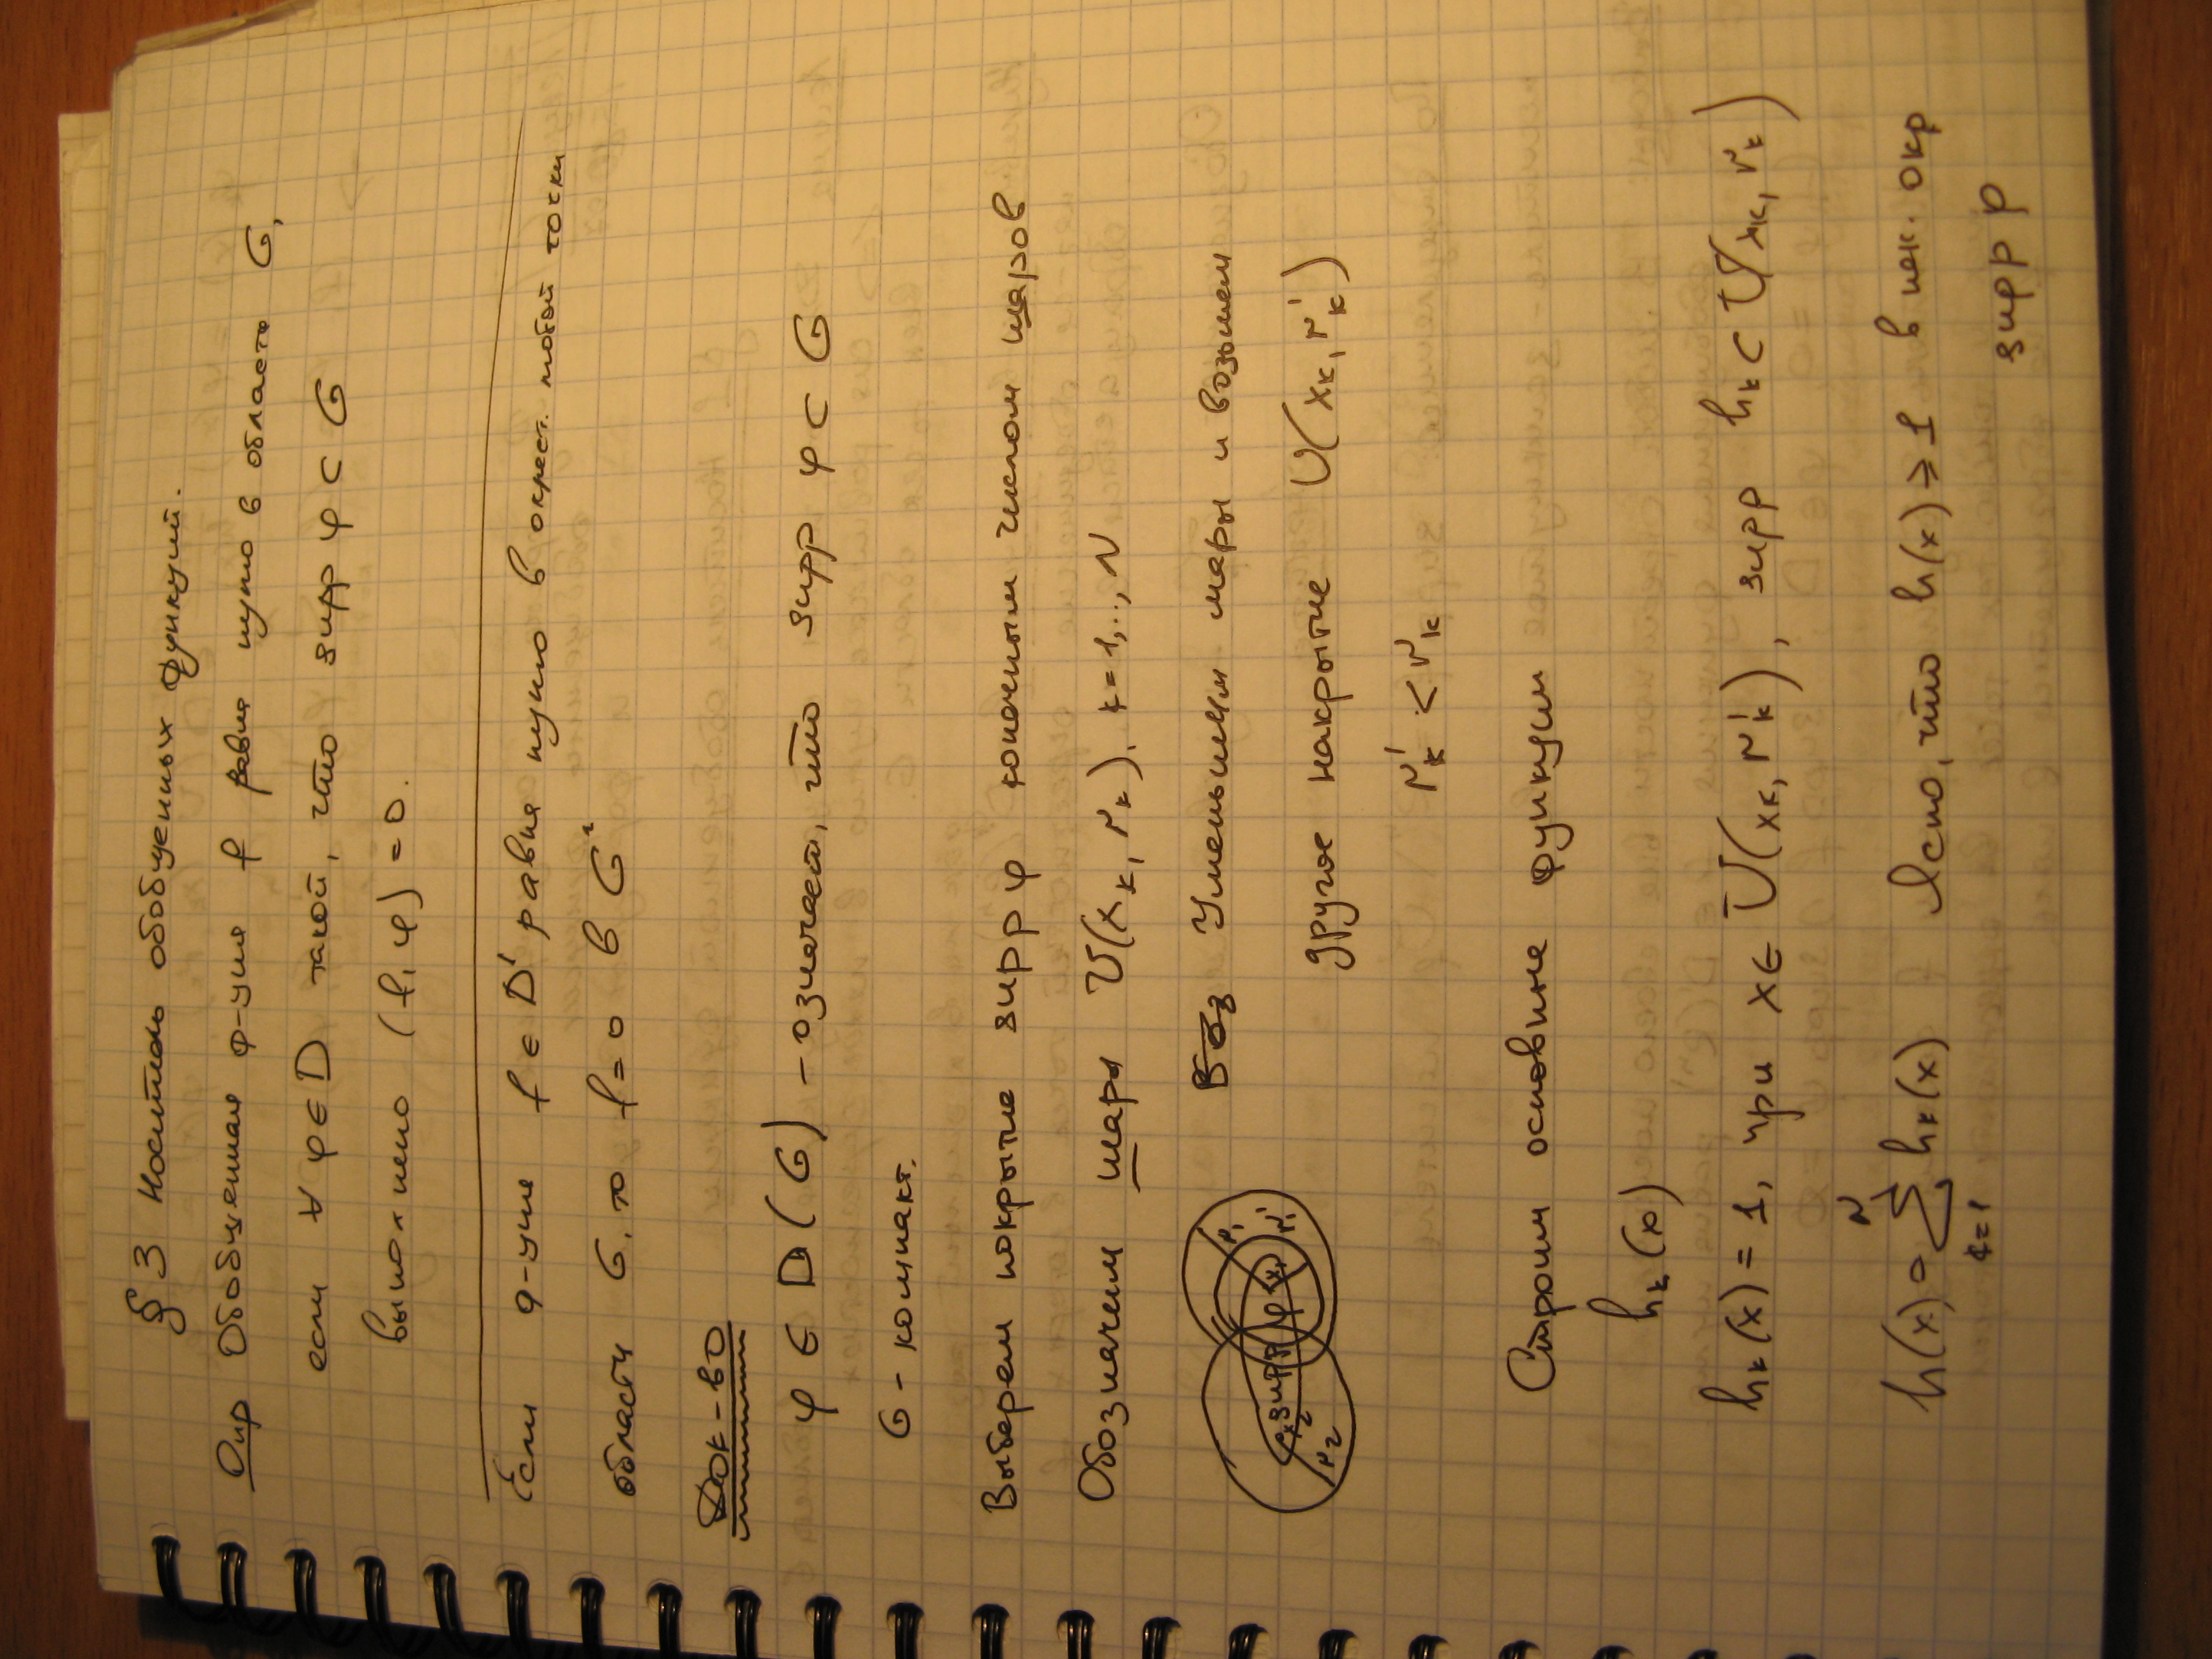 § 3 Носитель обобщенных функций.
Опр Обобщенная ф-ция f равна нулю в области G,
если ∀ φ ∈ D такой, что supp φ ⊂ G
выполнено (f, φ) = 0.
Если ф-ция f ∈ D' равна нулю в окрест. любой точки
области G, то f = 0 в G
Док-во
φ ∈ D(G) – означает, что supp φ ⊂ G
G - компакт.
Выберем покрытие supp φ конечным числом шаров
Обозначем шары U(x_k, r_k). k=1,..,N
Воз Уменьшим шары и возьмем
другое накрытие U(x_k, r_k')
r_k' < r_k
r_1
r_1'
x_1
supp φ
x_2
r_2
Строим основные функции
h_k(x)
h_k(x) = 1, при x ∈ U̅(x_k, r_k'), supp h_k ⊂ U(x_k, r_k)
h(x) = ∑_{k=1}^{N} h_k(x) Ясно, что h(x) ≥ 1 в нек. окр
supp φ